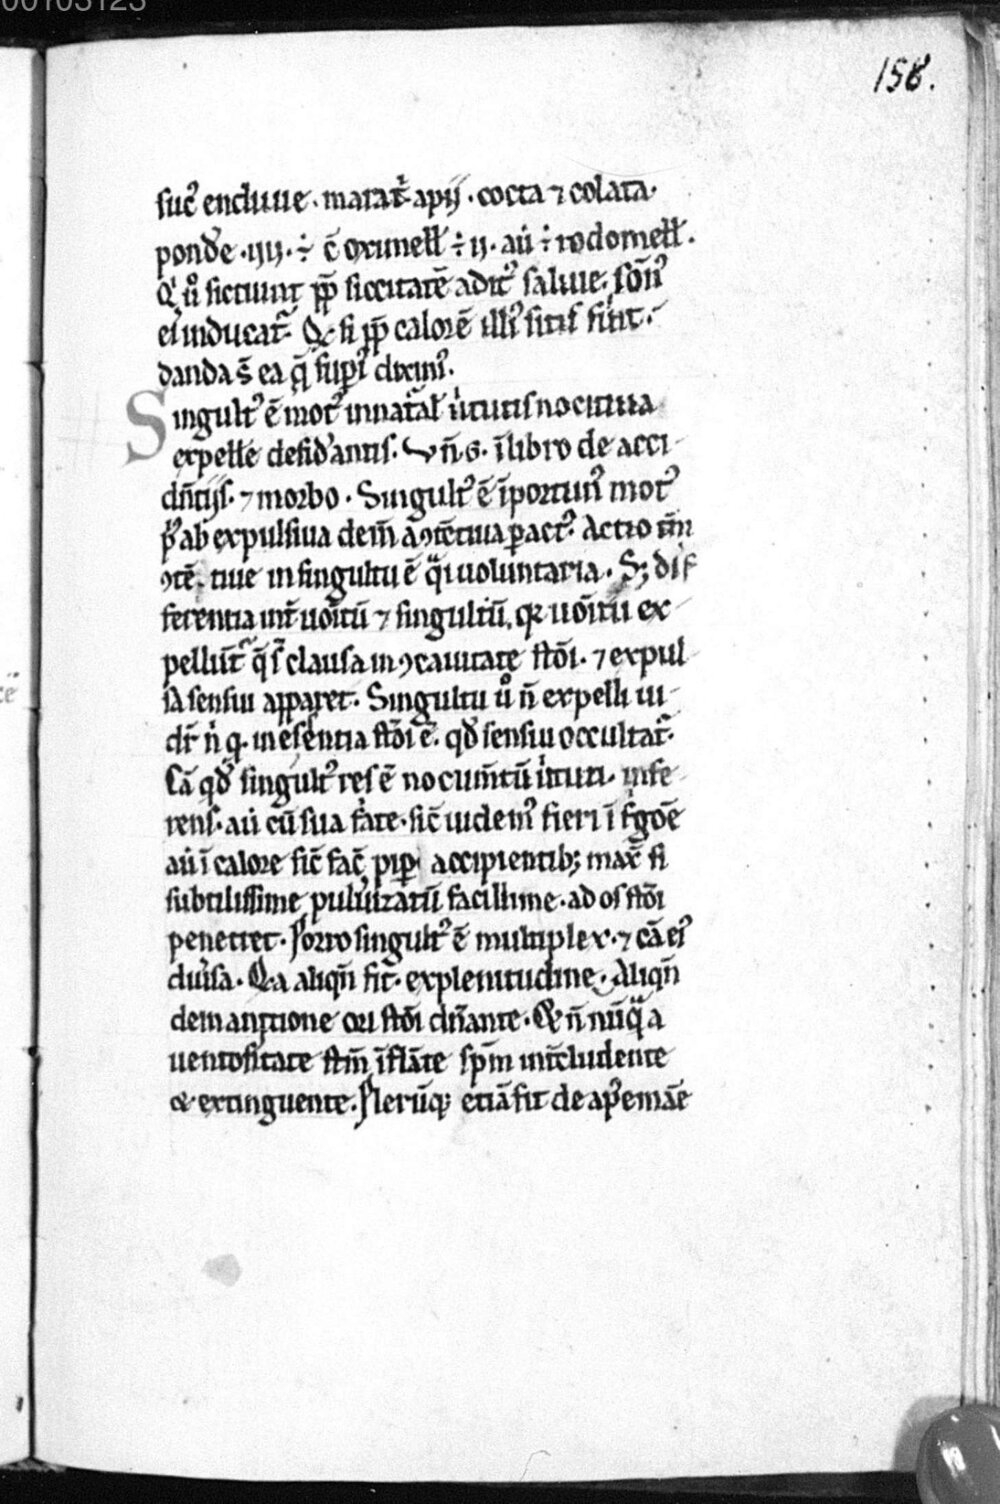 00103123
158.
sucꝰ endiuie · marat̃ apij · cocta ⁊ colata ·
pond̛e · iiij · ÷ c̃ oximell̃ ÷ ij · au̇ ÷ rodomell̃ .
Qͥ ůͦ sictiunt ꝓp̃ siccitatẽ adit᷒ saluie· sõn᷒
eiͥ inducat᷑ Qꝫ si ꝓp̃ calorẽ illi᷒ sitis sint ·
danda s̃ ea q̃ supͥ dixim᷒ .
Singult᷒ ẽ mot᷒ innat᷑al̃ ũtutis nociuua
expelle̛ desid̛antis . Vñ · G · ĩ libro de acci
dñtijs · ⁊ morbo · Singult᷒ ẽ ĩportun᷒ mot᷒
pͥ᷒ ab expulsiua dem̃ a ꝯtẽtiua ꝑact᷒ · Actio tm̃
ꝯtẽ · tiue in singultu ẽ qͣi uoluntaria · Sꝫ dif
ferentia int̃ uõitũ ⁊ singultũ · qꝛ uõitu ex
pellũt᷑ q̃ s̃ clausa in ꝯcauitate stõi · ⁊ expul
sa sensui apparet · Singultu ů ñ expelli ui
dr̃ ñ q· in esẽntia stõi ẽ · qd̛ sensui occultat᷑ ·
Cã qd̛ singult᷒ res ẽ nocum̃tũ ũtuti · infe
rens · au̇ cũ sua sͣ̃te · sic̃ uidem᷒ fieri ĩ frͥgoẽ
au̇ ĩ calore sic̃ fac̃ pip̛ accipientibꝫ max̃ si
subtilissime pulu̇izatũ facillime · ad os stõi
penetret · Porro singult᷒ ẽ multiplex · ⁊ cã ei᷒
diu̇sa · Qͣa aliqñ fit · ex plenitudine · Aliqñ
de inanitione ori stõi dñante · Et ñ nũqͣ a
uentositate stm̃ ĩflãte sp̃m int̃cludente
et extinguente · Plerũqꝫ etiã fit de ap̛emãe